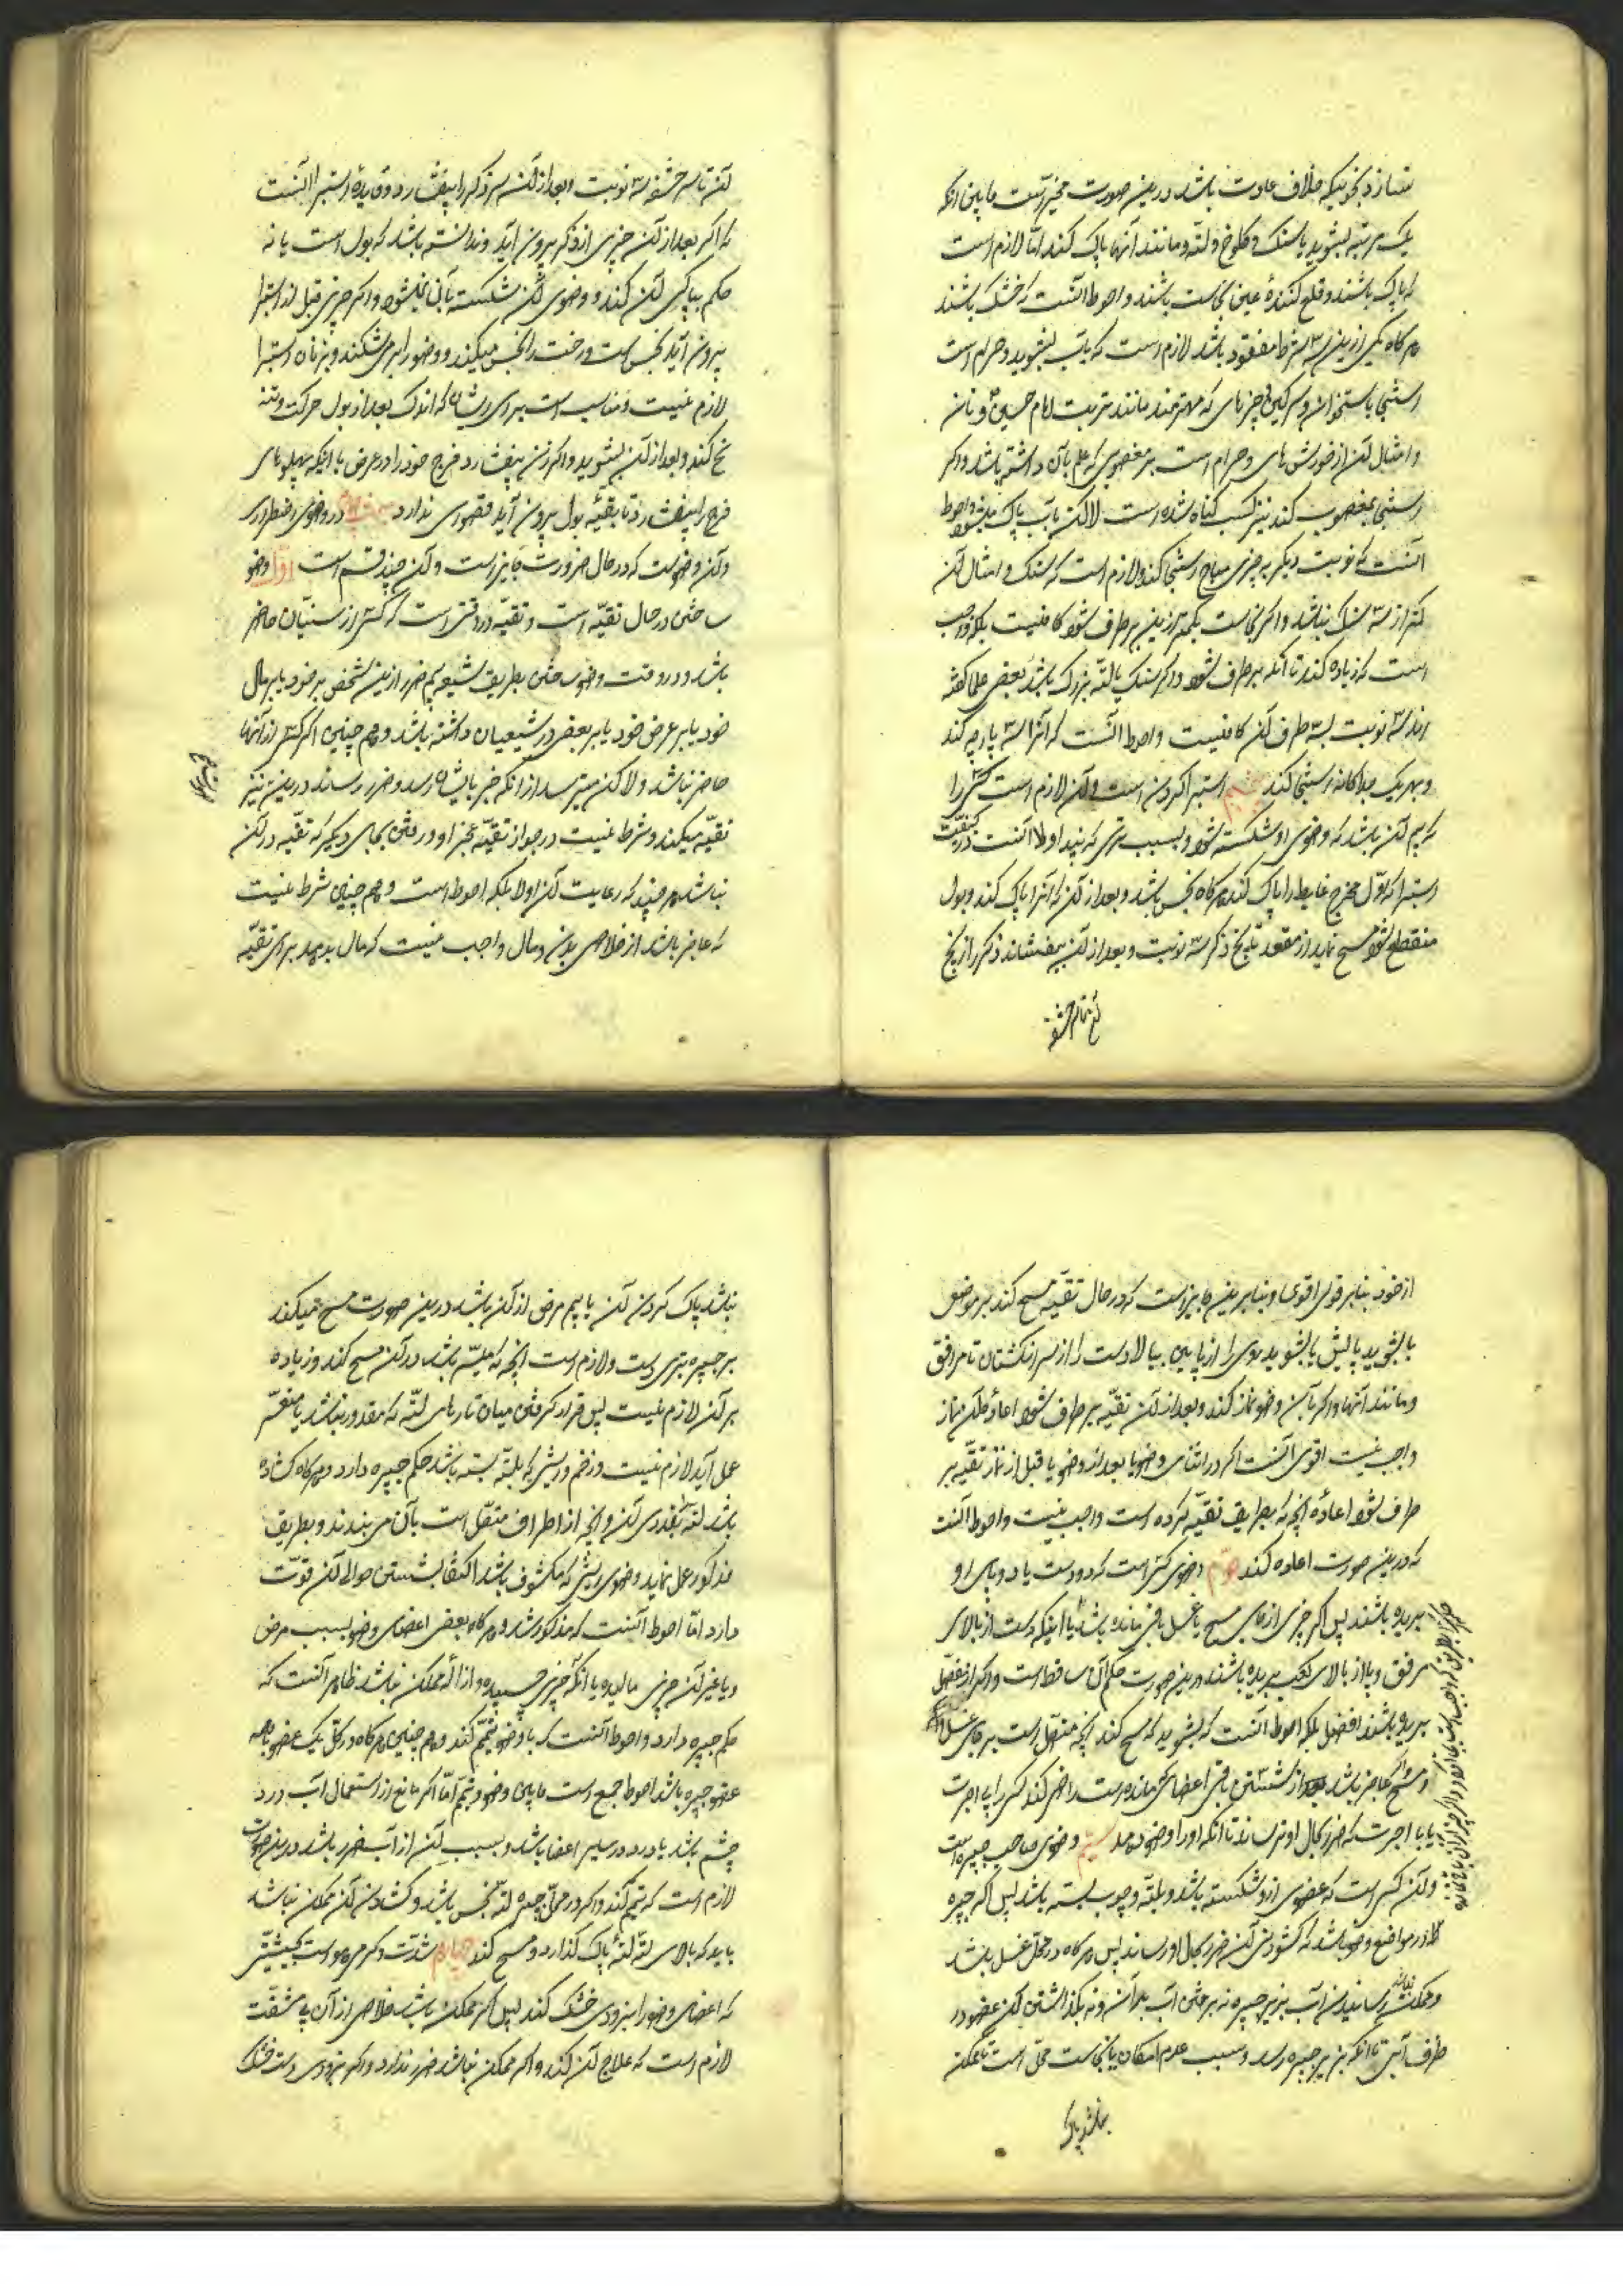 نسازد بنحویکه خلاف عادت باشد درین صورت مخیر است مابین انکه
یک مرتبه بشوید یا سنک و کلوخ و لته و مانند آنها پاک کند اما لازم است
که پاک باشند و قلع کنندهٔ عین نجاست باشند و احوط آنست که خشک باشند
هر کاه یکی ازین سه شرط مفقود باشد لازم است که بآب بشوید و حرام است
استنجا باستخوان و سرکین و چیزهای که محترمند مانند تربت امام حسین و نان
و امثال آن از خورش های و حرام است بر مغصوبی که علم بآن داشته باشد و اکر
استنجا بمغصوب کند نیز کسب کناه شده است لاکن بآب پاک میشود و احوط
آنست که نوبت دیکر بر چیزی مباح استنجا کند و لازم است که سنک و امثال آن
کمتر از سه سنک نباشد و اکر نجاست بکمتر ازین بر طرف شود کافی نیست بلکه واجب
است که زیاده کند تا آنکه بر طرف شود و اکر سنک یا لته بزرک باشد بعضی علما کفته
اند سه نوبت بسه طرف آن کافیست و احوط آنست که آنرا سه پارچه کند
و بهر یک جداکانه استنجا کند استبرا کردن است و آن لازم است کسی را
که بیم آن باشد که وضوی او شکسته شود و بسبب تری که بیند اولا آنست در کیفیت
استبرا که اول مخرج غایط را پاک کند هر کاه نجس باشد و بعد از آن که آنرا پاک کند و بول
منقطع شود مسح نماید از مقعد تا بیخ ذکر سه نوبت و بعد از آن بیفشاند ذکر را از بیخ
آن تا سر حشفه سه نوبت و بعد از آن سر ذکر را بیفشارد و فایدهٔ استبرا آنست
که اکر بعد از آن چیزی از ذکر بیرون آید و ندانسته باشد که بول است یا نه
حکم بپاکی آن کند و وضوی آن شکسته بآن نمیشود و اکر چیزی قبل از استبرا
بیرون آید نجس است و رخت را نجس میکند و وضو را بر میشکند و بزنان استبرا
لازم نیست و مناسب است برای ایشان که اندک بعد از بول حرکت و تنح
نح کند و بعد از آن بشوید و اکر زن بیفشارد فرج خود را در عرض یا اینکه پهلوهای
فرج را بیفشارد تا بقیهٔ بول بیرون آید قصوری ندارد در وضوی اضطراری
و آن وضوست که در حال ضرورت جایز است و آن چند قسم است اول وضو
ساختن در حال تقیه است و تقیه در وقتی است که کسی از سنیان حاضر
باشد و در وقت وضو ساختن بطریق شیعه بیم ضرر ازین شخص بر خود یا بر مال
خود یا بر عرض خود یا بر بعضی از شیعیان داشته باشد و هم چنین اکر کسی از آنها
حاضر نباشد و لاکن میترسد از انکه خبر بایشان رسد و ضرر رساند درین نیز
تقیه میکند و شرط نیست در جواز تقیه عجز او رفتن بجای دیکر که تقیه در آن
نباشد هر چند که رعایت آن اولا بلکه احوط است و هم چنین شرط نیست
که عاجز باشد از خلاصی بدن و مال واجب نیست که مال بدهد برای تقیه
از خود بنا بر قول اقوی و بنا برین جایز است که در حال تقیه مسح کند بر موضع
یا بشوید پایش یا بشوید روی را از پایین ببالا و دست را از سر انکشتان تا مرافق
و مانند آنها و اکر بآن وضو نماز کند و بعد از آن تقیه بر طرف شود اعادهٔ آن نماز
واجب نیست اقوی آنست اکر در اثنای وضو یا بعد از وضو یا قبل از نماز تقیه بر
طرف شود اعادهٔ آنچه که بطریق تقیه کرده است واجب نیست و احوط آنست
که درین صورت اعاده کند دویم وضوی کسی است که دو دست یا دو پای او
بریده باشند پس اکر چیزی از جای مسح یا غسل باقی مانده باشد یا اینکه دست از بالای
مرفق و پا از بالای کعب بریده باشند درین صورت حکم آن ساقط است و اکر از مفصل
بریده باشند افضل بلکه احوط آنست که بشوید که مسح کند آنچه متصل است بر جای
عاجز باشد بعد از شستن باقی اعضای مانده است راضی کند کسی را با اجرت
یا بی اجرت که ضرر بحال او نرساند تا آنکه او را وضو دهد سیم وضوی صاحب جبیره است
و آن کسی است که عضوی از او شکسته باشد و بلته و چوب بسته باشد پس اکر جبیره
در مواضع وضو باشد که کشودن آن ضرر بحال او رساند پس هر کاه در محل غسل باشد
و ممکن رسانیدن آب بزیر جبیره نه بر ریختن آب بر آن و نه بکذاشتن آن عضو در
ظرف آبی تا آنکه بزیر جبیره رسد و بسبب عدم امکان یا نجاست محل است ممکن
نباشد پاک کردن آن یا بیم مرض از آن باشد درین صورت مسح میکند
بر جبیره بتری دست و لازم است آنچه که میسر باشد در آن مسح کند و زیاده
بر آن لازم نیست پس قرار کرفتن میان تارهای لته که مقدور نباشد یا متعسر
عمل آید لازم نیست و زخم و ریشی که بلته بسته باشد حکم جبیره دارد و هر کاه کشاده
باشد لته بقدری آن و آنچه از اطراف متصل است بآن می بندند و بطریق
مذکور عمل نماید وضوی ریشی که مکشوف باشد اکتفا بشستن حوالی آن قوت
دارد اما احوط آنست که مذکور شد و هر کاه بعضی اعضای وضو بسبب مرض
و یا غیر آن چیزی مالیده یا آنکه چیزی چسبیده و ازاله ممکن نباشد ظاهر آنست که
حکم جبیره دارد و احوط آنست که با وضو تیمم کند و هم چنین هر کاه در کل یک عضو یا همه
عضو جبیره باشد احوط جمع است مابین وضو و تیمم اما اکر مانع از استعمال آب درد
چشم باشد یا درد در سایر اعضا باشد و بسبب آن از آب ضرر باشد درین صورت
لازم است که تیمم کند و اکر در محل جبیره لته نجس باشد و کشادن آن ممکن نباشد
باید که بالای لته لتهٔ پاک کذارد و مسح کند چهارم شدت کرمی هواست
که اعضای وضو را بزودی خشک کند پس اکر ممکن باشد خلاصی از آن بی مشقت
لازم است که علاج آن کند و اکر ممکن نباشد ضرر ندارد و اکر بزودی دست خشک